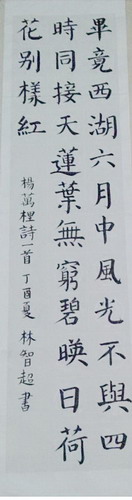 畢竟西湖六月中風光不與四
時同接天蓮葉無窮碧映日荷
花别樣紅
楊萬裡詩一首丁酉夏林智超書